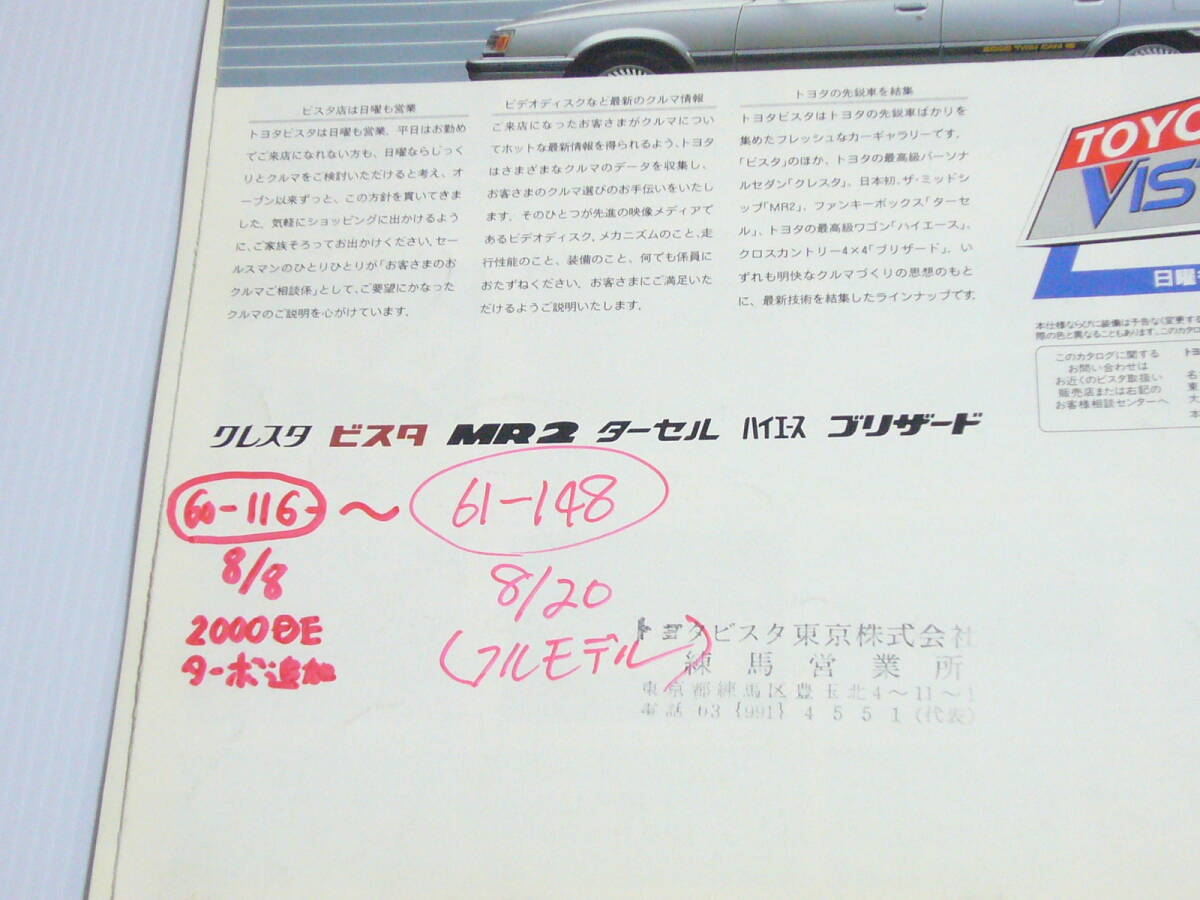 2000 TWIN CAM 16
ビスタ店は日曜も営業
トヨタビスタは日曜も営業、平日はお勤め
でご来店になれない方も、日曜ならじっく
りとクルマをご検討いただけると考え、オ
ープン以来ずっと、この方針を貫いてきま
した。気軽にショッピングに出かけるよう
に、ご家族そろってお出かけください。セー
ルスマンのひとりひとりが「お客さまのお
クルマご相談係」として、ご要望にかなった
クルマのご説明を心がけています。
ビデオディスクなど最新のクルマ情報
ご来店になったお客さまがクルマについ
てホットな最新情報を得られるよう、トヨタ
はさまざまなクルマのデータを収集し、
お客さまのクルマ選びのお手伝いをいたし
ます。そのひとつが先進の映像メディアで
あるビデオディスク。メカニズムのこと、走
行性能のこと、装備のこと、何でも係員に
おたずねください。お客さまにご満足いた
だけるようご説明いたします。
トヨタの先鋭車を結集
トヨタビスタはトヨタの先鋭車ばかりを
集めたフレッシュなカーギャラリーです。
「ビスタ」のほか、トヨタの最高級パーソナ
ルセダン「クレスタ」、日本初、ザ・ミッドシ
ップ「MR2」、ファンキーボックス「ターセ
ル」、トヨタの最高級ワゴン「ハイエース」、
クロスカントリー4×4「ブリザード」。い
ずれも明快なクルマづくりの思想のもと
に、最新技術を結集したラインナップです。
TOYO
VIS
日曜
本仕様ならびに装備は予告なく変更する
際の色と異なることもあります。このカタロ
このカタログに関する
お問い合わせは
お近くのビスタ取扱い
販売店または右記の
お客様相談センターへ
トヨ
名
東
大
本
クレスタ ビスタ MR2 ターセル ハイエース ブリザード
60-116- 〜 61-148
8/8
8/20
2000DE
ターボ追加
(フルモデル)
トヨタビスタ東京株式会社
練馬営業所
東京都練馬区豊玉北4〜11〜1
電話 03 {991} 4551 (代表)